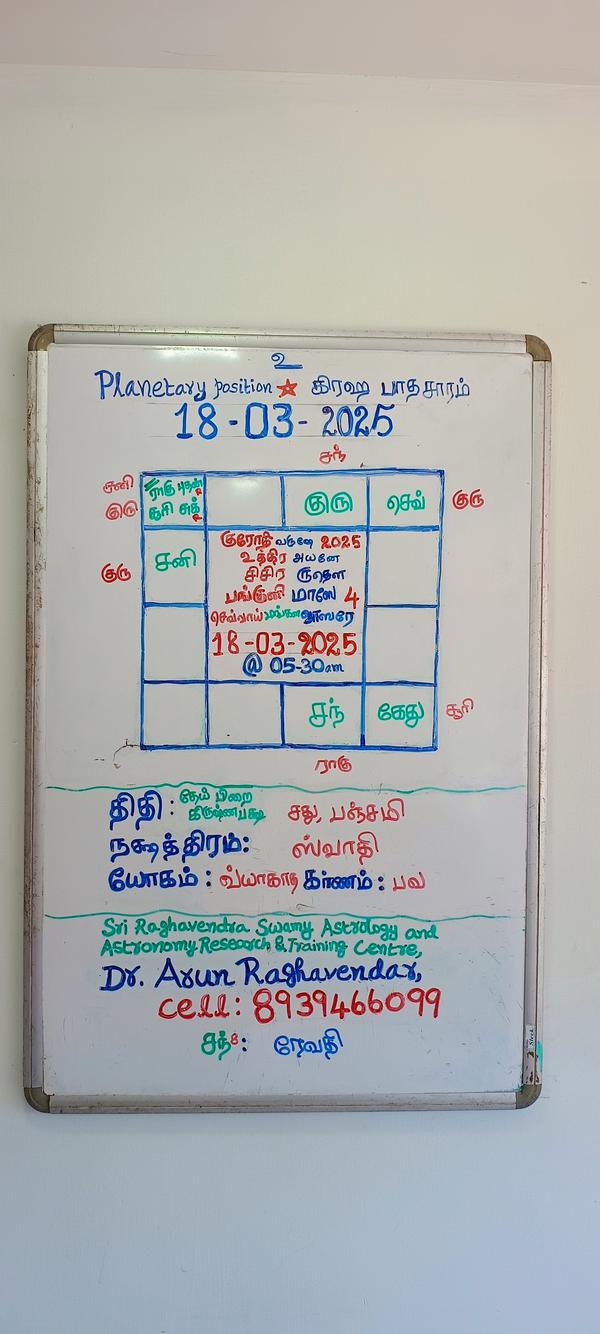 உ
Planetary position ★ கிரஹ பாதசாரம்
18-03-2025
சந்
சனி
குரு
ராகு புதன்
சூரி சுக்
குரு
செவ்
குரு
குரு
சனி
குரோதி வருஷ 2025
உத்திர அயனே
சிசிர ருதௌ
பங்குனி மாஸே 4
செவ்வாய் மங்கள வாஸரே
18-03-2025
@ 05-30am
சந்
கேது
சூரி
ராகு
திதி : தேய் பிறை கிருஷ்ணபக்ஷ சது, பஞ்சமி
நக்ஷத்திரம்: ஸ்வாதி
யோகம் : வ்யாகாத கரணம் : பவ
Sri Raghavendra Swamy Astrology and
Astronomy Research & Training Centre,
Dr. Arun Raghavendar,
cell: 8939466099
சந்8: ரேவதி